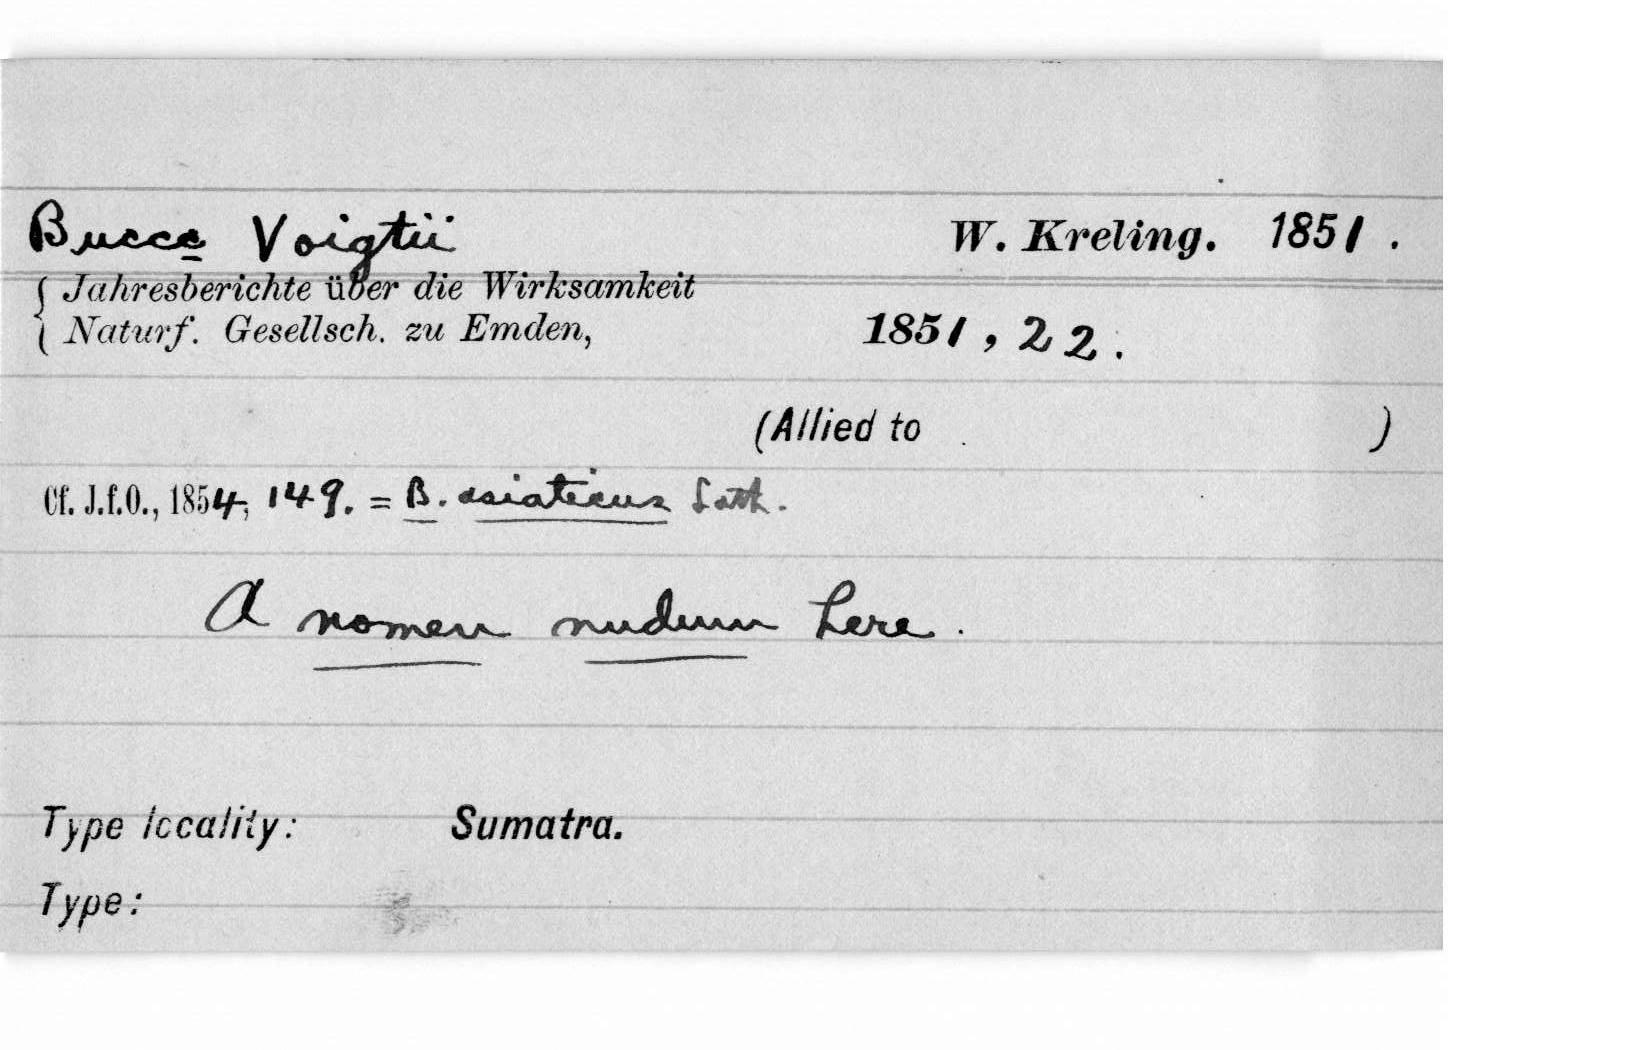 Bucco Voigtii W. Kreling. 1851.
Jahresberichte über die Wirksamkeit
Naturf. Gesellsch. zu Emden, 1851, 22.
(Allied to )
Cf. J.f.O., 1854, 149. = B. asiaticus Lath.
A nomen nudum here.
Type locality: Sumatra.
Type: